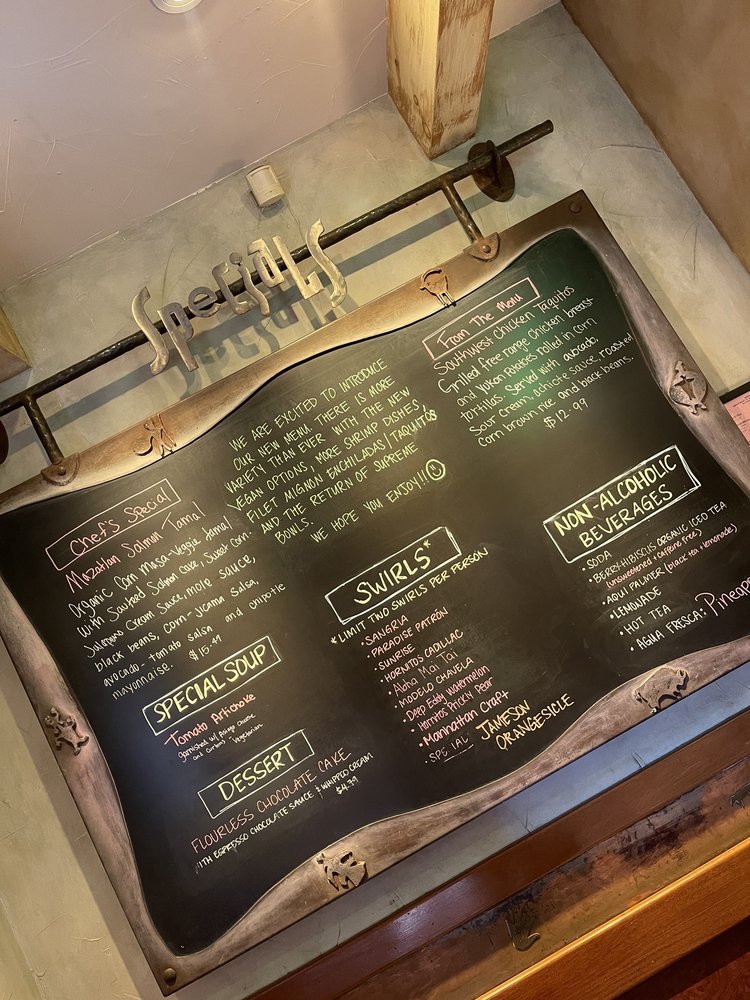 Specials
Chef's Special
Mazatlan Salmon Tamal
Organic Corn Masa-Veggie tamal
with Sauteed Salmon Cake, Sweet Corn-
Jalapeno Cream Sauce, mole sauce,
black beans, corn-jicama salsa,
avocado-tomato salsa and chipotle
mayonnaise. $15.49
SPECIAL SOUP
Tomato Artichoke
garnished w/ asiago cheese
and croutons - Vegetarian
DESSERT
FLOURLESS CHOCOLATE CAKE
WITH ESPRESSO CHOCOLATE SAUCE & WHIPPED CREAM
$4.39
WE ARE EXCITED TO INTRODUCE
OUR NEW MENU. THERE IS MORE
VARIETY THAN EVER WITH THE NEW
VEGAN OPTIONS, MORE SHRIMP DISHES,
FILET MIGNON ENCHILADAS/TAQUITOS
AND THE RETURN OF SUPREME
BOWLS.
WE HOPE YOU ENJOY!!
SWIRLS*
*LIMIT TWO SWIRLS PER PERSON
• SANGRIA
• PARADISE PATRÓN
• SUNRISE
• HORNITOS CADILLAC
• Aloha Mai Tai
• MODELO CHAVELA
• Deep Eddy Watermelon
• Hornitos Prickly Pear
• Manhattan Craft
• SPECIAL JAMESON
ORANGESICLE
From The Menu
Southwest Chicken Taquitos
Grilled free range chicken breast
and Yukon Potatoes rolled in corn
tortillas. Served with avocado,
Sour cream, achiote sauce, roasted
corn brown rice and black beans.
$12.99
NON-ALCOHOLIC
BEVERAGES
• SODA
• BERRY HIBISCUS ORGANIC ICED TEA
(unsweetened + caffeine free)
• AQUI PALMER (black tea, lemonade)
• LEMONADE
• HOT TEA
• AGUA FRESCA: